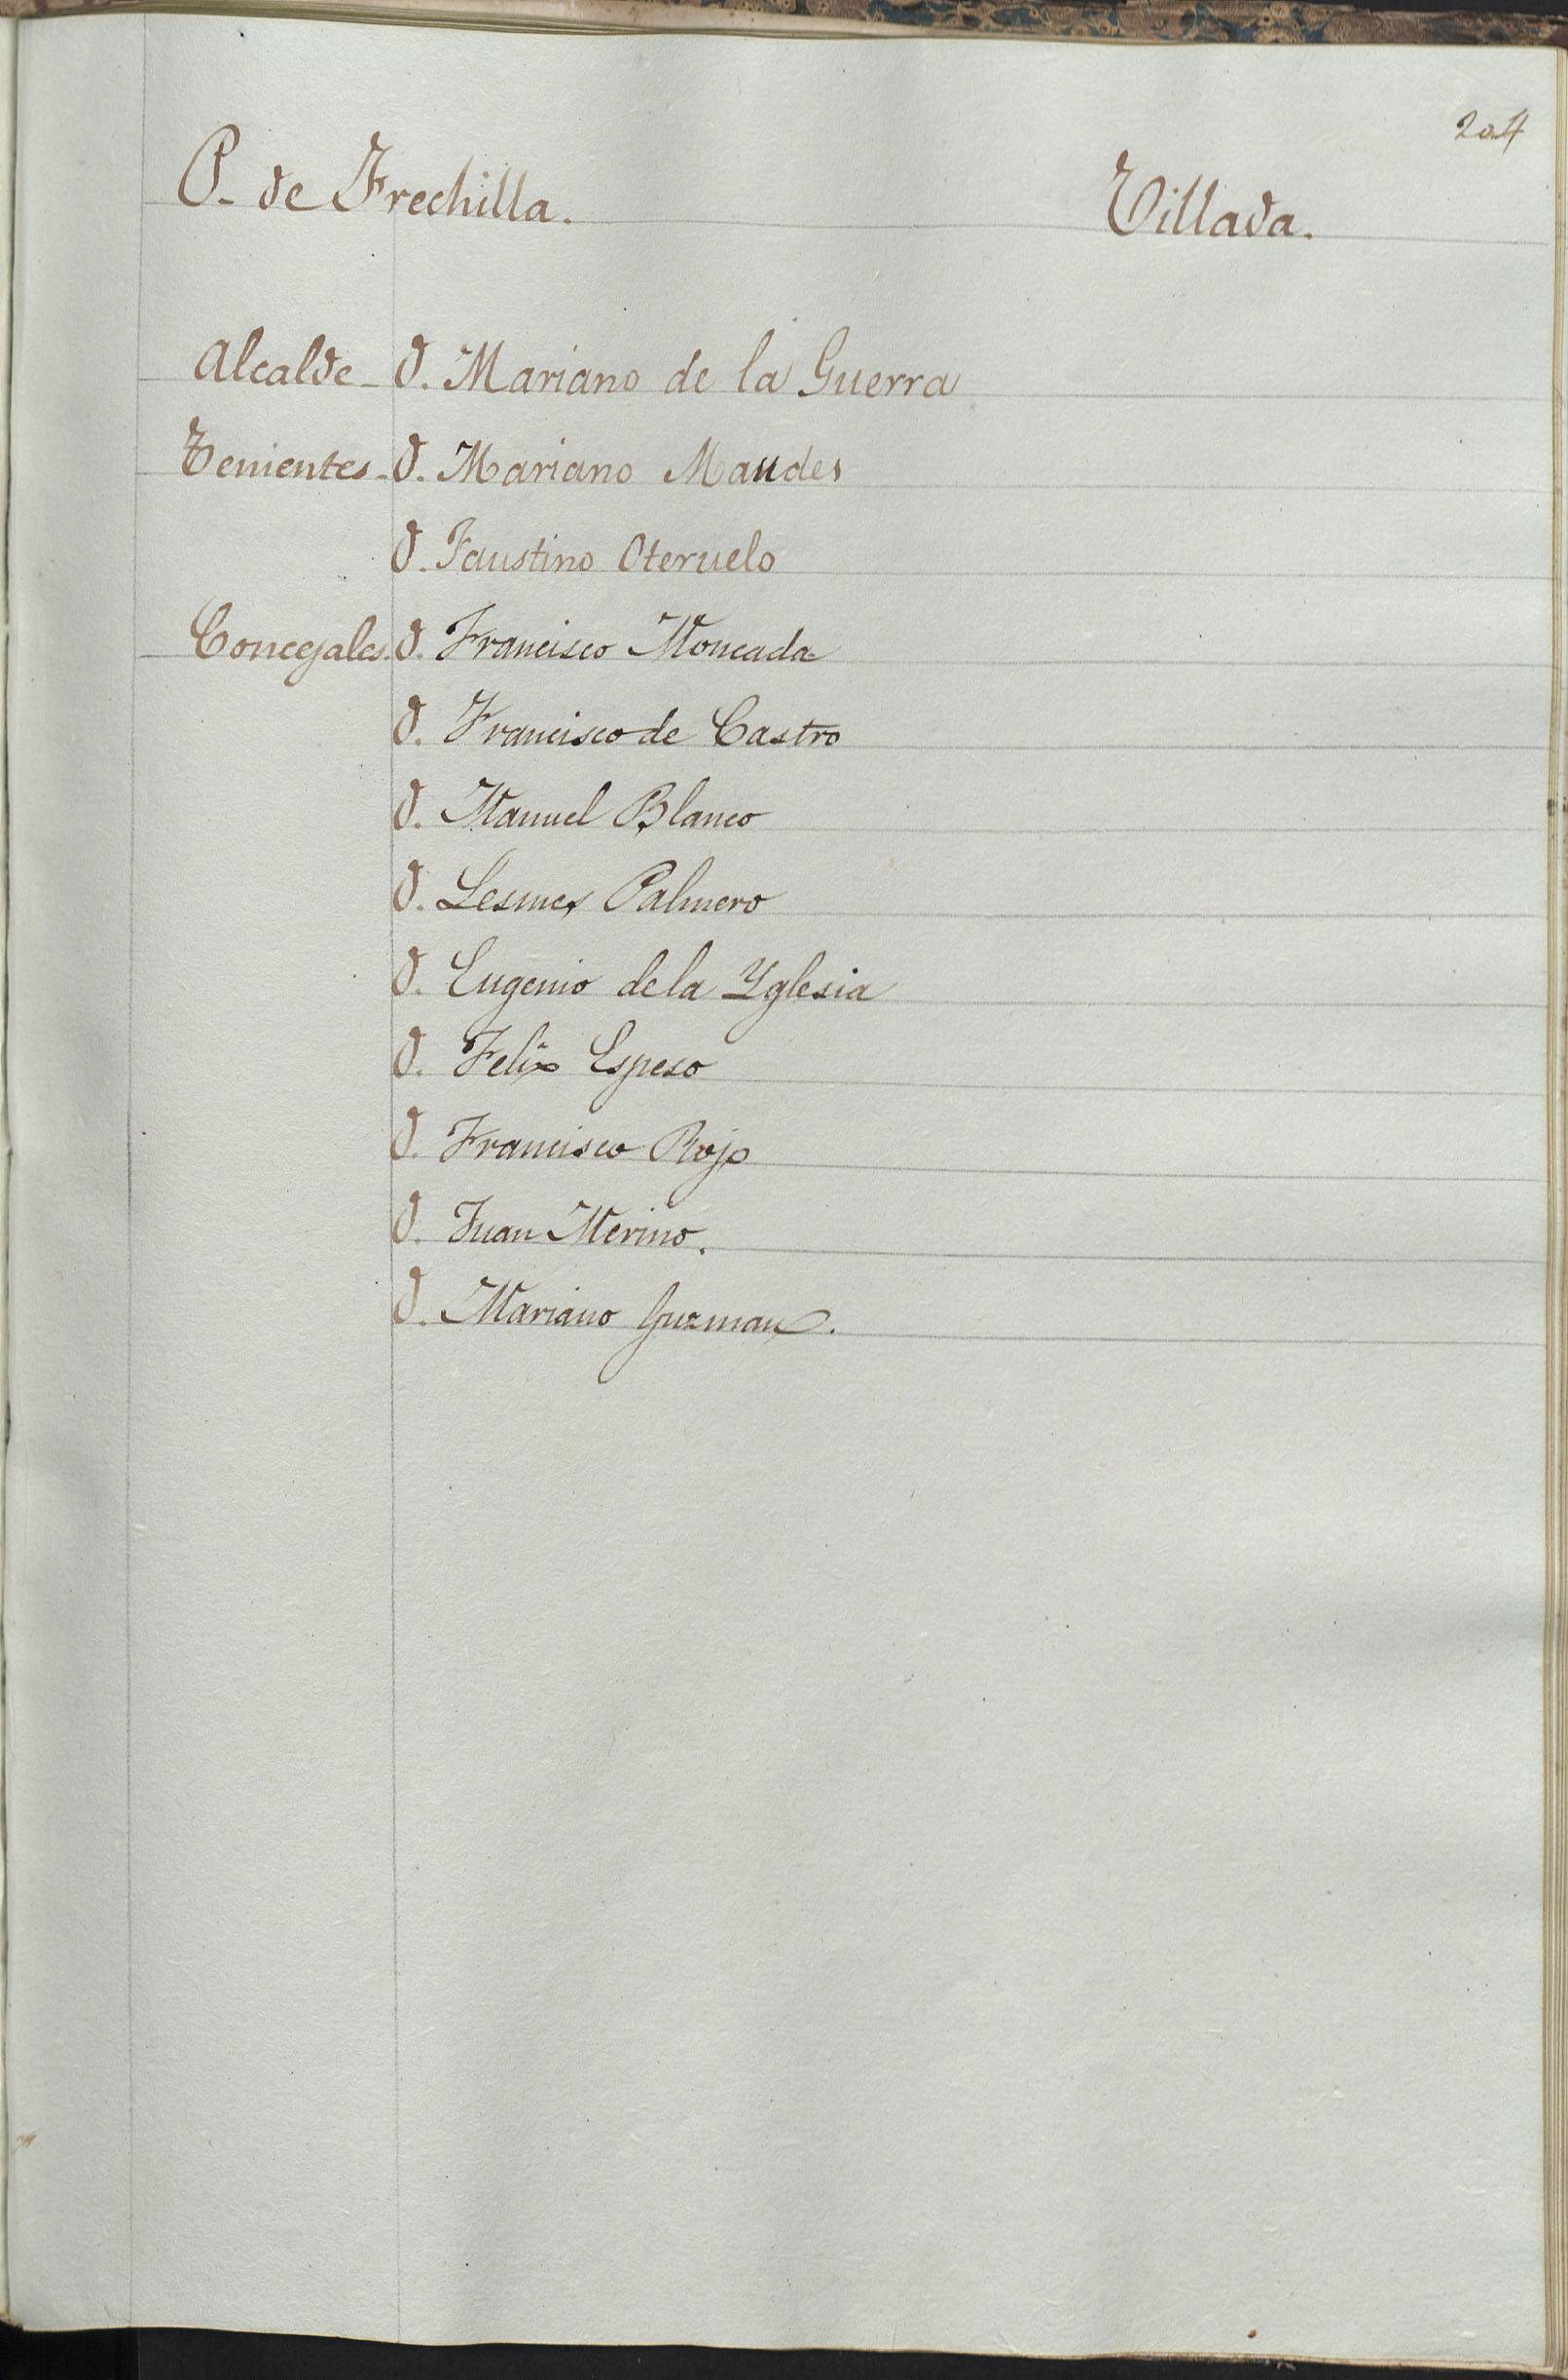 204
P. de Frechilla. Villada.
Alcalde - D. Mariano de la Guerra
Tenientes - D. Mariano Maudes
D. Faustino Oteruelo
Concejales. D. Francisco Moncada
D. Francisco de Castro
D. Manuel Blanco
D. Lesmes Palmero
D. Eugenio de la Yglesia
D. Felix Espeso
D. Francisco Rojo
D. Juan Merino.
D. Mariano Guzman.